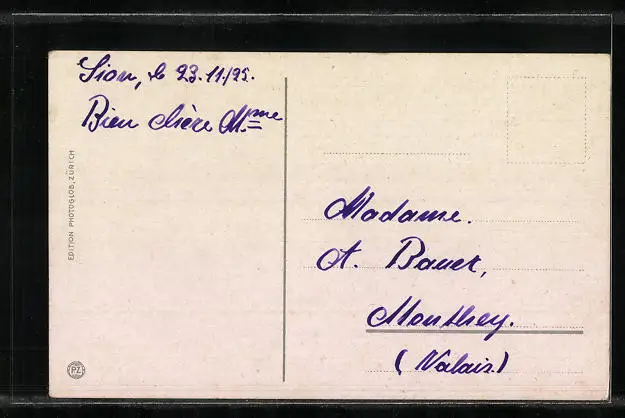 Sion, le 23.11/25.
Bien chère Mme
EDITION PHOTOGLOB, ZÜRICH
PZ
Madame.
A. Bauer,
Monthey.
(Valais)